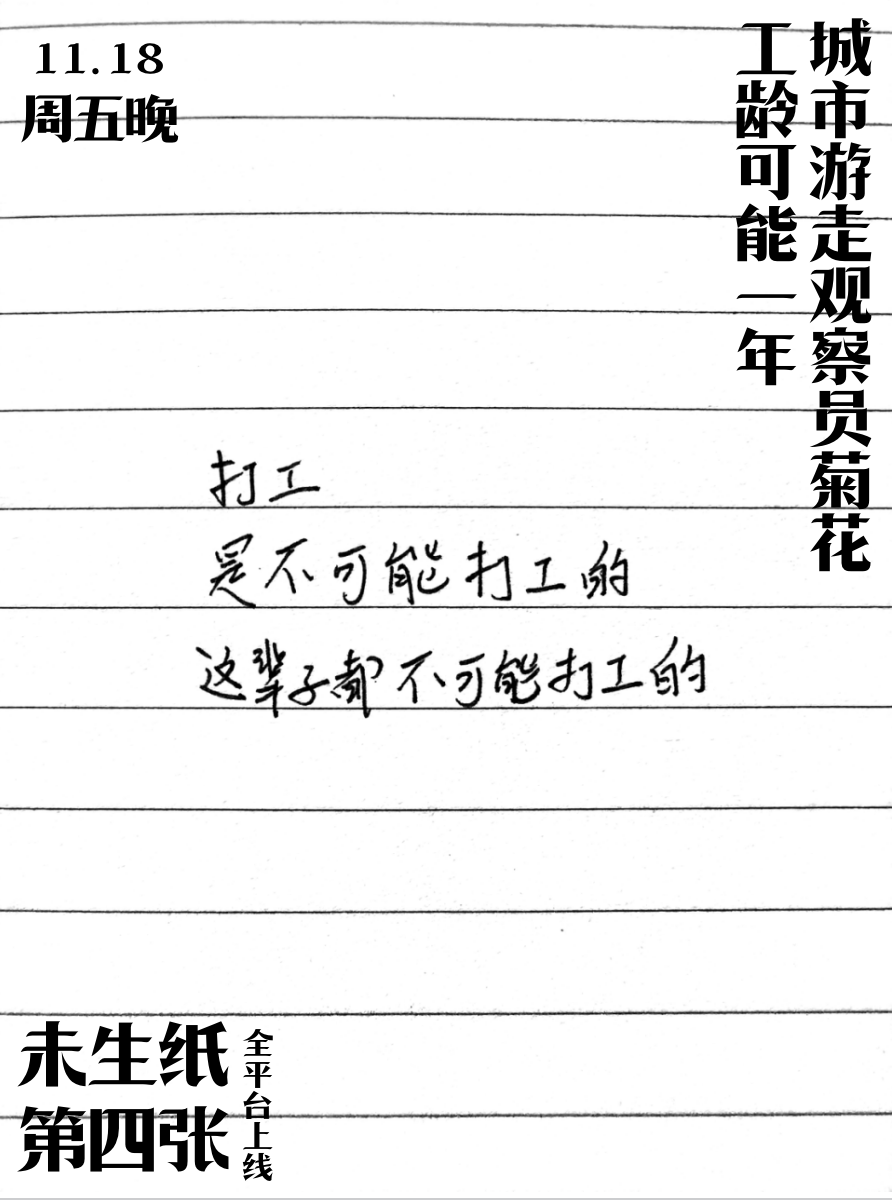 11.18
周五晚
城市游走观察员菊花
工龄可能一年
打工
是不可能打工的
这辈子都不可能打工的
未生纸
第四张
全平台上线